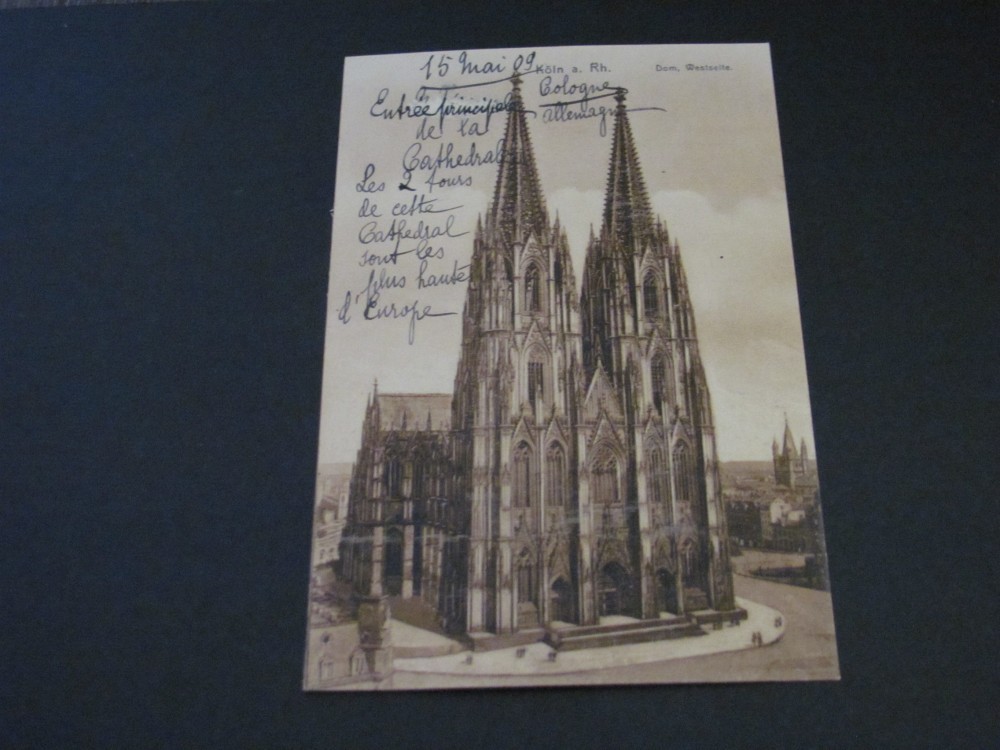 15 Mai 09
Köln a. Rh.
Dom, Westseite.
Cologne
allemagne
Entrée principale
de la
Cathedral
Les 2 tours
de cette
Cathedral
sont les
plus haute
d'Europe